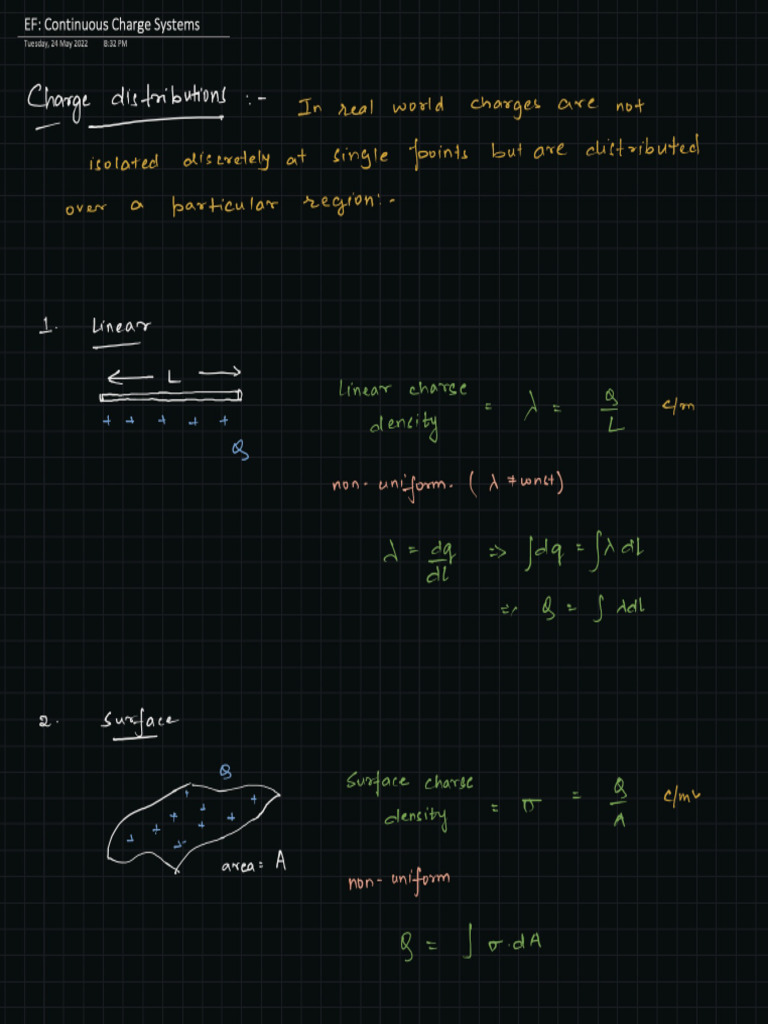 EF: Continuous Charge Systems
Tuesday, 24 May 2022 8:32 PM
Charge distributions :- In real world charges are not
isolated discretely at single points but are distributed
over a particular region:-
1. Linear
L
+ + + + +
Q
Linear charge
density = λ = Q/L C/m
non-uniform. (λ ≠ const)
λ = dq/dl => ∫dq = ∫λ dl
=> Q = ∫ λdl
2. Surface
Q
+ + + + + + + + +
area = A
Surface charge
density = σ = Q/A C/m²
non-uniform
Q = ∫ σ.dA